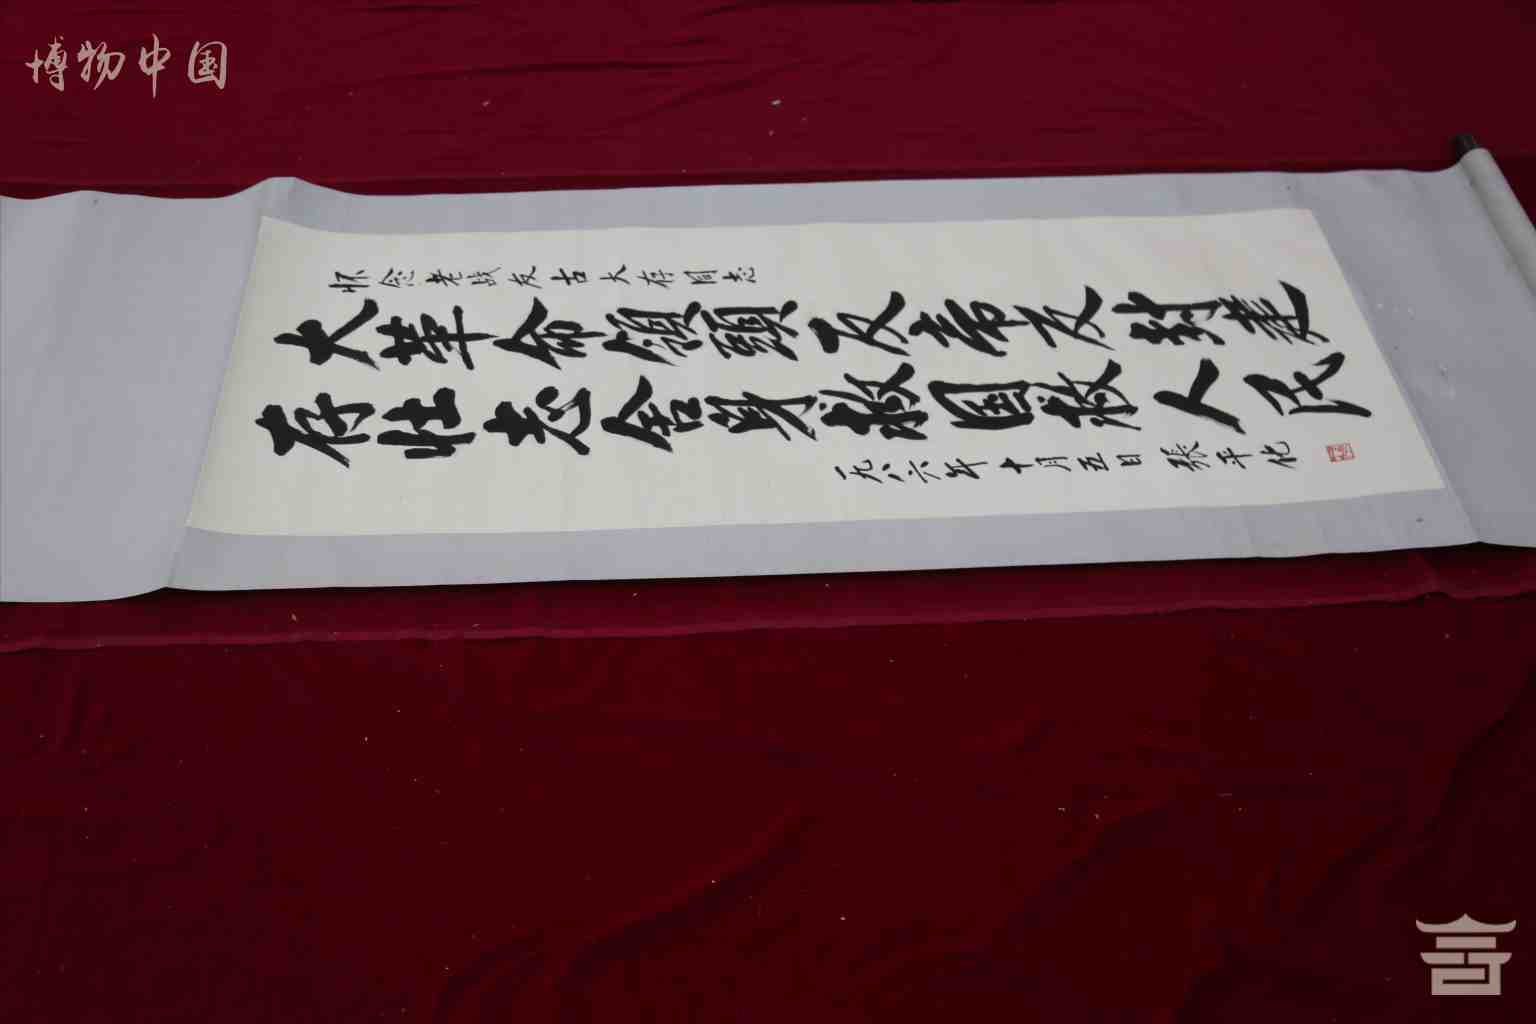 博物中国
怀念老战友古大存同志
大革命领頭反帝反封建
存壮志舍身救国救人民
一九八六年十月五日 張平化